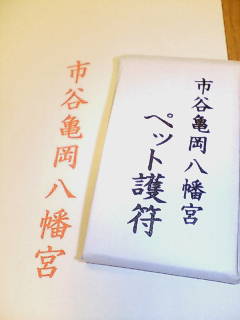 市谷亀岡八幡宮
ペット護符
市谷亀岡八幡宮